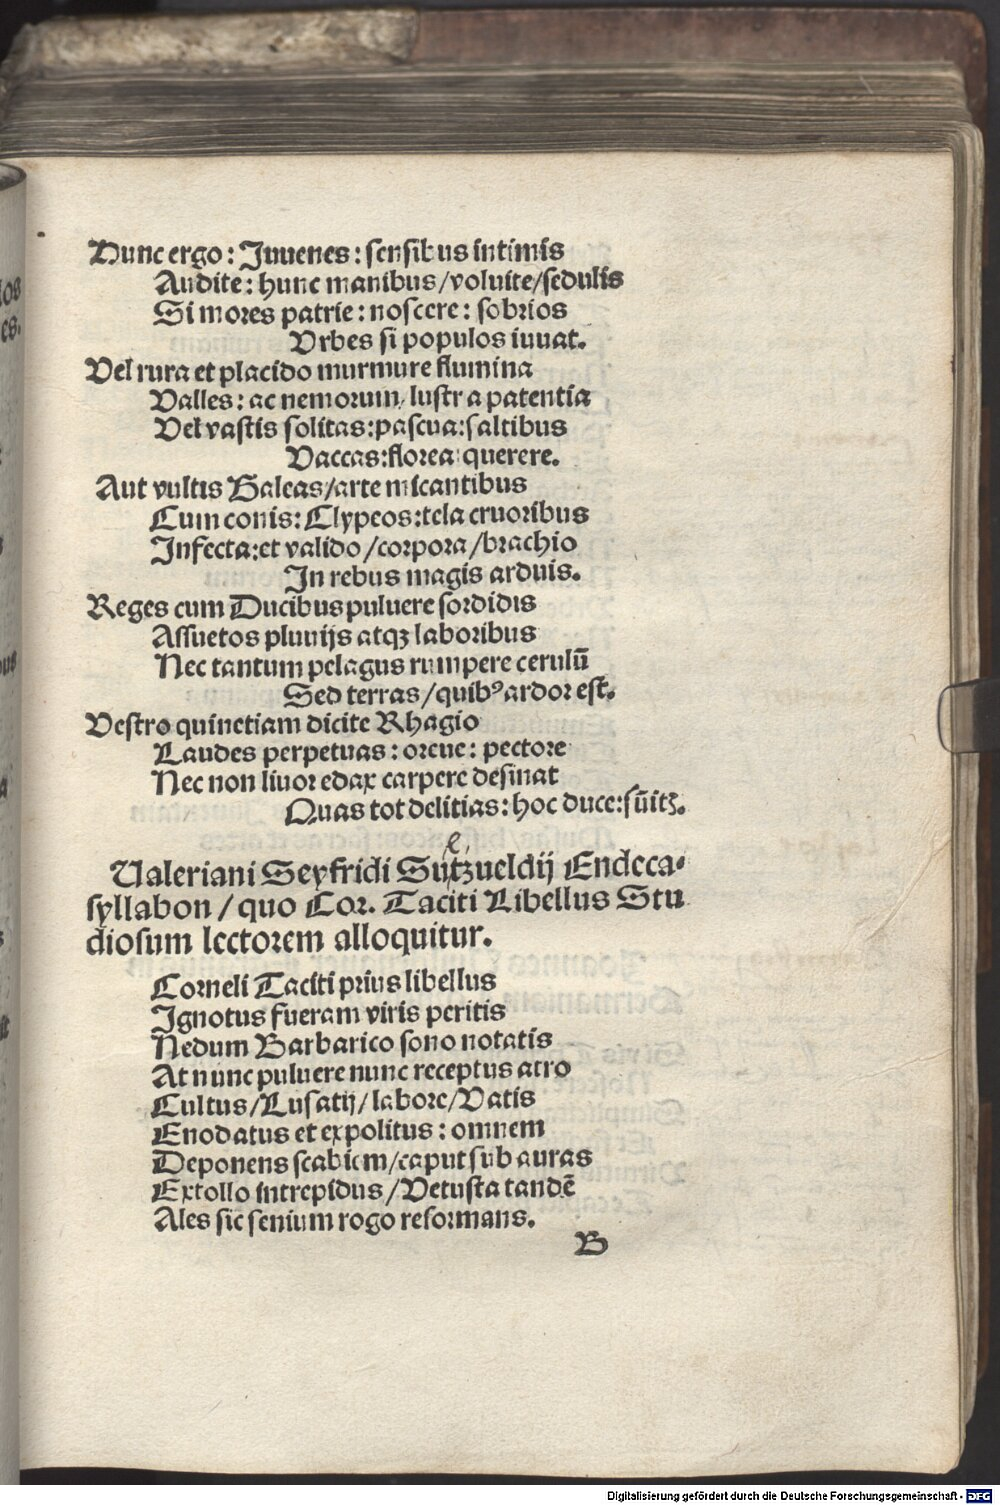 Hunc ergo: Iuuenes: sensibus intimis
Audite: hunc manibus/voluite/sedulis
Si mores patrie: noscere: sobrios
Vrbes si populos iuuat.
Vel rura et placido murmure flumina
Valles: ac nemorum/ lustra patentia
Vel vastis solitas:pascua:saltibus
Vaccas:florea:querere.
Aut vultis Galeas/arte micantibus
Cum conis: Clypeos:tela cruoribus
Infecta:et valido/corpora/brachio
In rebus magis arduis.
Reges cum Ducibus puluere sordidis
Assuetos pluuijs atqꝫ laboribus
Nec tantum pelagus rumpere cerulū
Sed terras/quibꝰ ardor est.
Vestro quinetiam dicite Rhagio
Laudes perpetuas: oreue: pectore
Nec non liuor edax carpere desinat
Quas tot delitias: hoc duce:sūitꝫ.
e
Valeriani Seyfridi Sutzueldij Endeca-
syllabon/quo Cor. Taciti Libellus Stu
diosum lectorem alloquitur.
Corneli Taciti prius libellus
Ignotus fueram viris peritis
Nedum Barbarico sono notatis
At nunc puluere nunc receptus atro
Cultus/Lusatij/labore/Vatis
Enodatus et expolitus: omnem
Deponens scabiem/caput sub auras
Extollo intrepidus/Vetusta tandē
Ales sic senium rogo reformans.
B
Digitalisierung gefördert durch die Deutsche Forschungsgemeinschaft - DFG